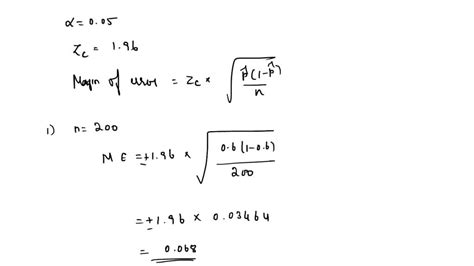 α = 0.05
Zc = 1.96
Margin of error = Zc × √(p̂(1-p̂)/n)
1) n = 200
M E = ±1.96 × √(0.6(1-0.6)/200)
= ±1.96 × 0.03464
= 0.068